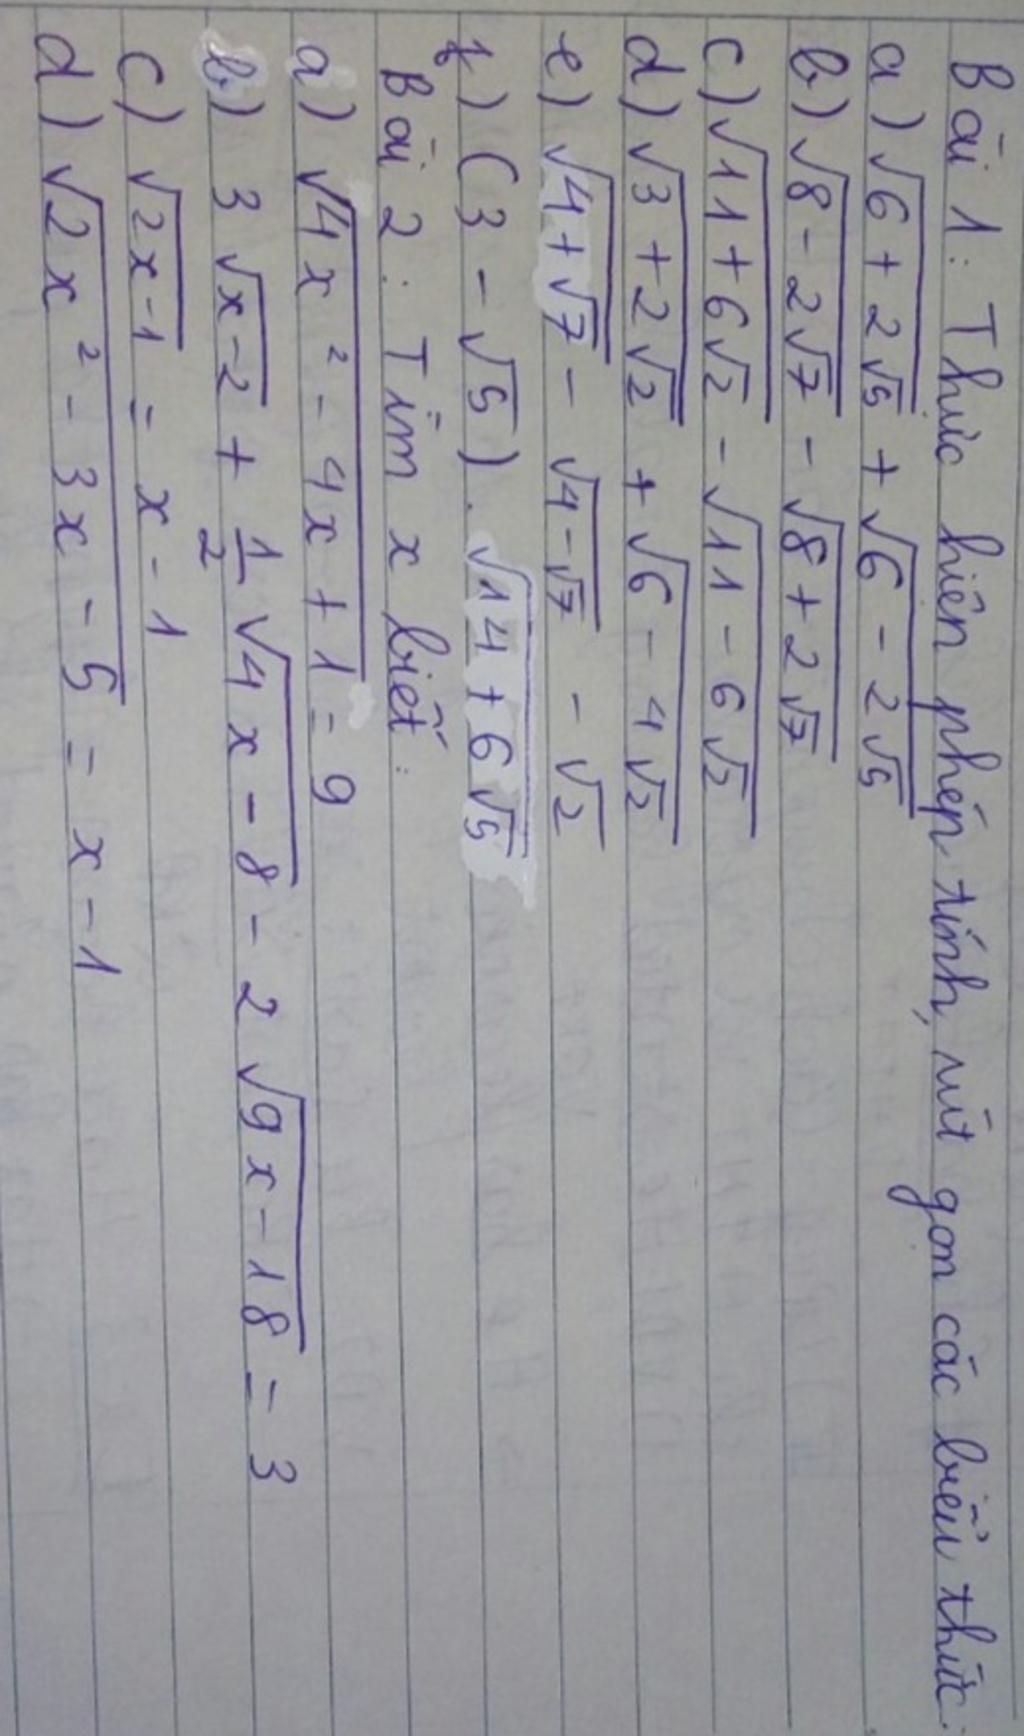 Bài 1: Thực hiện phép tính, rút gọn các biểu thức.
a) √(6 + 2√5) + √(6 - 2√5)
b) √(8 - 2√7) - √(8 + 2√7)
c) √(11 + 6√2) - √(11 - 6√2)
d) √(3 + 2√2) + √(6 - 4√2)
e) √(4 + √7) - √(4 - √7) - √2
f) (3 - √5) . √(14 + 6√5)
Bài 2: Tìm x biết:
a) √(4x² - 4x + 1) = 9
b) 3√(x - 2) + 1/2 √(4x - 8) - 2√(9x - 18) = 3
c) √(2x - 1) = x - 1
d) √(2x² - 3x - 5) = x - 1